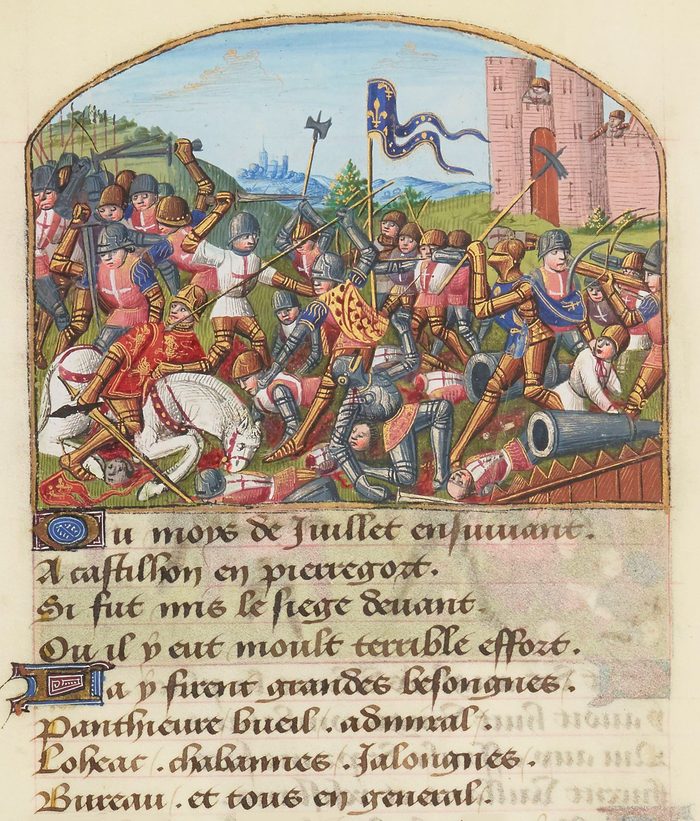 Ou moys de Juillet ensuivant.
A castillon en pierregort.
Si fut mis le siege devant.
Ou il y eut moult terrible effort.
La y firent grandes besongnes.
Panthieure bueil. admiral.
Loheac. chabannes. Jalongnes.
Bureau. et tous en general.